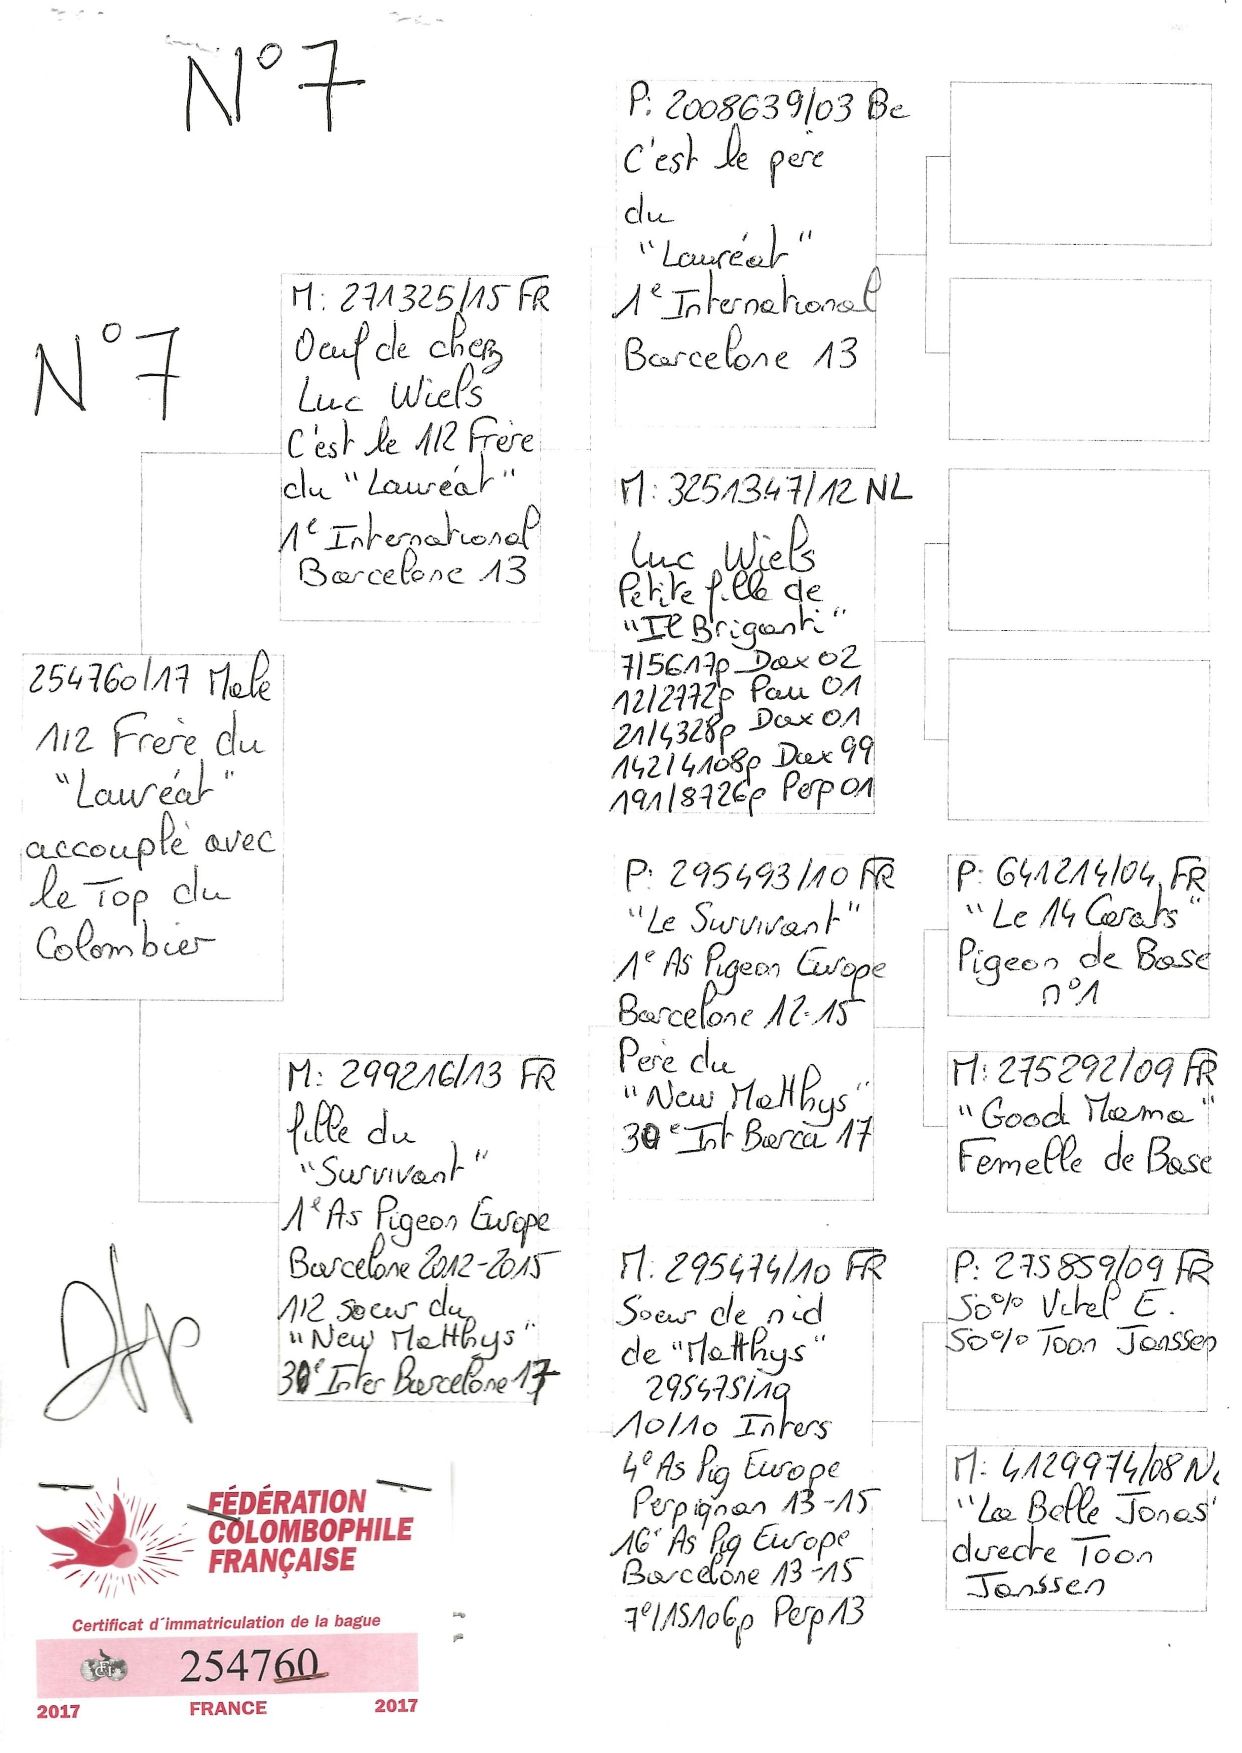 N° 7
N° 7
254760/17 Male
1/2 Frère du
"Lauréat"
accouplé avec
le Top du
Colombier
M: 271325/15 FR
Oeuf de chez
Luc Wiels
C'est le 1/2 Frère
du "Lauréat"
1e International
Barcelone 13
M: 299216/13 FR
fille du
"Survivant"
1e As Pigeon Europe
Barcelone 2012-2015
1/2 soeur du
"New Matthys"
30e Inter Barcelone 17
P: 2008639/03 Be
C'est le père
du
"Lauréat"
1e International
Barcelone 13
M: 3251347/12 NL
Luc Wiels
Petite fille de
"Il Briganti"
7/5617p Dax 02
12/2772p Pau 01
21/4328p Dax 01
142/4108p Dax 99
191/8726p Perp 01
P: 295493/10 FR
"Le Survivant"
1e As Pigeon Europe
Barcelone 12-15
Père du
"New Matthys"
30e Int Barca 17
M: 295474/10 FR
Soeur de nid
de "Matthys"
295475/10
10/10 Inters
4e As Pig Europe
Perpignan 13-15
16e As Pig Europe
Barcelone 13-15
7e/15106p Perp 13
P: 641214/04 FR
"Le 14 Carats"
Pigeon de Base
n°1
M: 275292/09 FR
"Good Mama"
Femelle de Base
P: 275859/09 FR
50% Vitel E.
50% Toon Janssen
M: 4129974/08 NL
"La Belle Jonas"
directe Toon
Janssen
FÉDÉRATION
COLOMBOPHILE
FRANÇAISE
Certificat d´immatriculation de la bague
254760
2017 FRANCE 2017